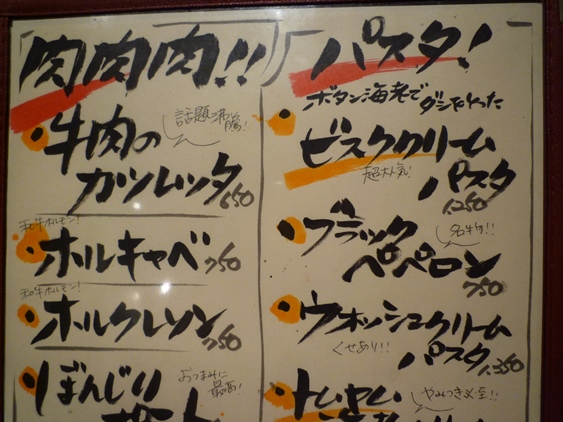 肉肉肉!!
話題沸騰!
牛肉の
カツレッタ 650
和牛ホルモン!
ホルキャベ 750
和牛ホルモン!
ホルクレソン 750
ぼんじり
おつまみに
最高!
パスタ!
ボタン海老で
ダシをとった
ビスククリーム
超大人気!
パスタ
1,250
ブラック
名物!!
ペペロン
750
ウォッシュクリーム
くせあり!!
パスタ 1,350
トムヤム
やみつき必至!!